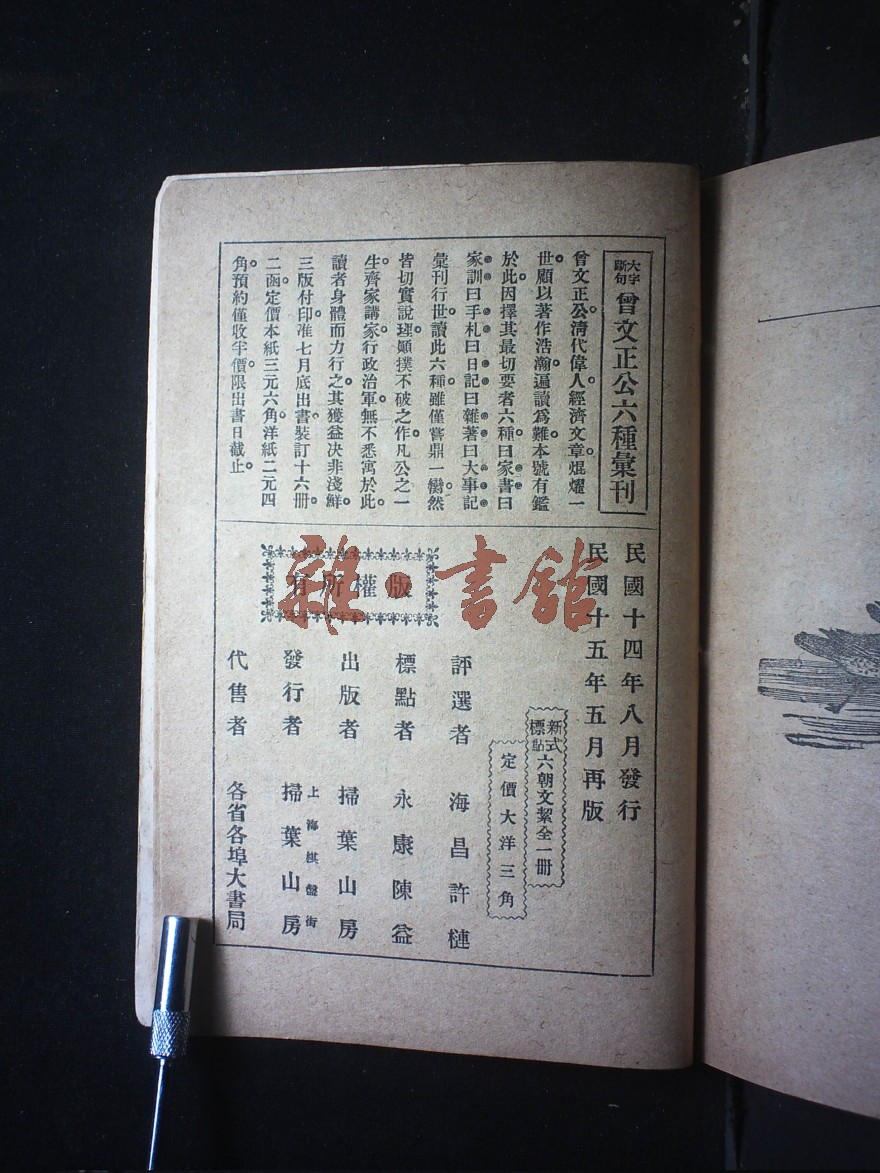 大字斷句 曾文正公六種彙刊
曾文正公。清代偉人。經濟文章。焜燿一
世。顧以著作浩瀚。遍讀爲難。本號有鑑
於此。因擇其最切要者六種。曰家書。曰
家訓。曰手札。曰日記。曰雜著。曰大事記。
彙刊行世。讀此六種。雖僅嘗鼎一臠。然
皆切實說理。顚撲不破之作。凡公之一
生齊家講家行政治軍。無不悉寓於此。
讀者身體而力行之。其獲益决非淺鮮。
三版付印。准七月底出書。裝訂十六册。
二函。定價本紙三元六角。洋紙二元四
角。預約僅收半價。限出書日截止。
民國十四年八月發行
民國十五年五月再版
新式標點 六朝文絜全一册
定價大洋三角
版權所有
評選者 海昌許槤
標點者 永康陳益
出版者 掃葉山房
上海棋盤街
發行者 掃葉山房
代售者 各省各埠大書局
雜·書館